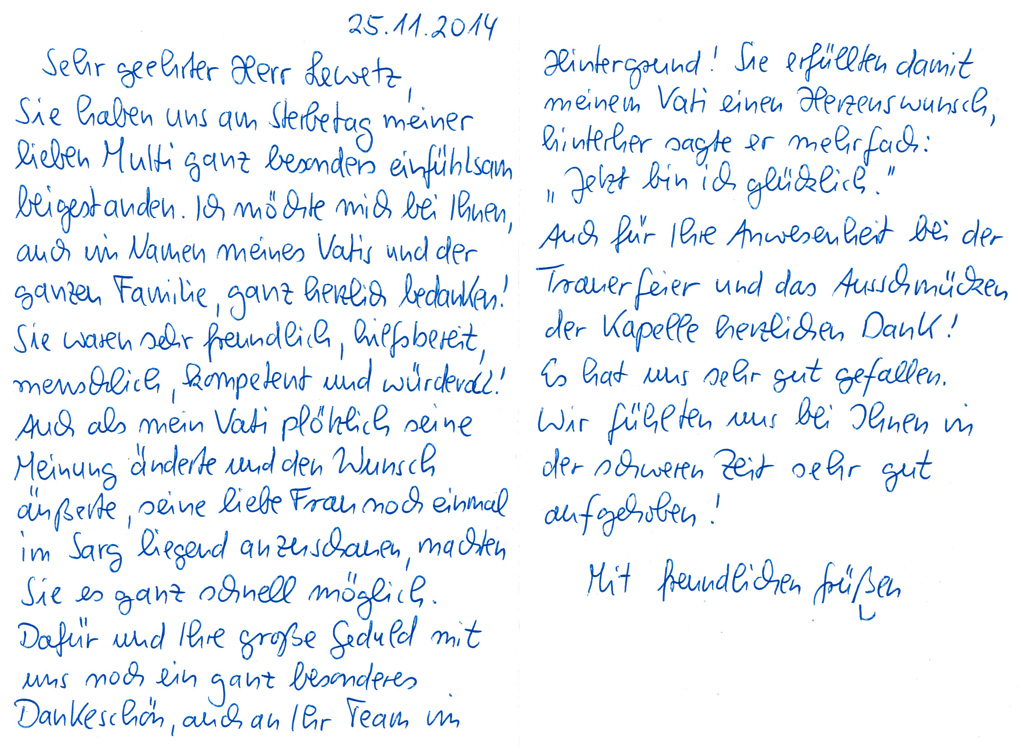 25.11.2014
Sehr geehrter Herr Lewetz,
Sie haben uns am Sterbetag meiner
lieben Mutti ganz besonders einfühlsam
beigestanden. Ich möchte mich bei Ihnen,
auch im Namen meines Vatis und der
ganzen Familie, ganz herzlich bedanken!
Sie waren sehr freundlich, hilfsbereit,
menschlich, kompetent und würdevoll!
Auch als mein Vati plötzlich seine
Meinung änderte und den Wunsch
äußerte, seine liebe Frau noch einmal
im Sarg liegend anzuschauen, machten
Sie es ganz schnell möglich.
Dafür und Ihre große Geduld mit
uns noch ein ganz besonderes
Dankeschön, auch an Ihr Team im
Hintergrund! Sie erfüllten damit
meinem Vati einen Herzenswunsch,
hinterher sagte er mehrfach:
„Jetzt bin ich glücklich."
Auch für Ihre Anwesenheit bei der
Trauerfeier und das Ausschmücken
der Kapelle herzlichen Dank!
Es hat uns sehr gut gefallen.
Wir fühlten uns bei Ihnen in
der schweren Zeit sehr gut
aufgehoben!
Mit freundlichen Grüßen